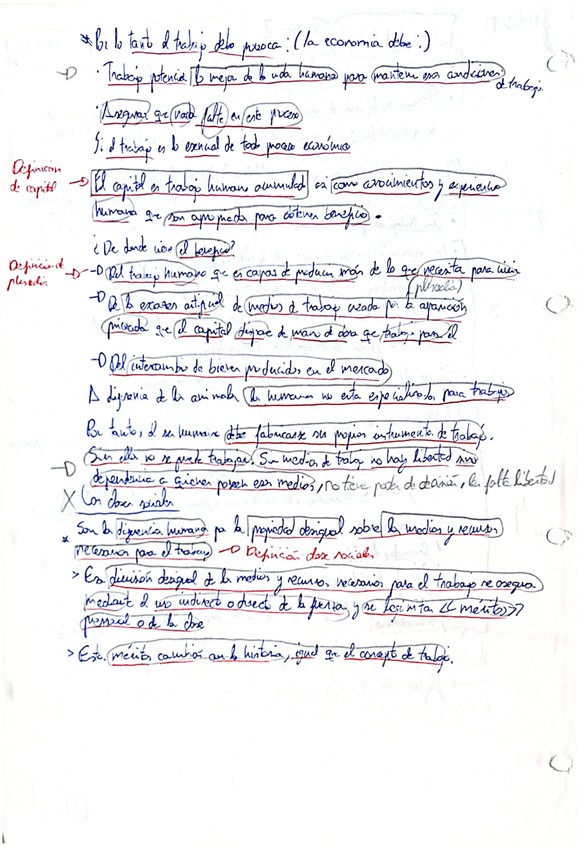 * Por lo tanto el trabajo debe provocar: (la economía debe:)
· Trabajo potencial la mejora de la vida humana para mantener esas condiciones de trabajo.
· Asegurar que nada falte en este proceso
Si el trabajo es lo esencial de todo proceso económico
Definición de capital → El capital es trabajo humano acumulado en como conocimientos y experiencia
humana que son apropiada para obtener beneficio.
¿De donde viene el beneficio?
Definición de plusvalía → Del trabajo humano que es capaz de producir más de lo que necesita para vivir
(plusvalía)
→ De la escasez artificial de medios de trabajo creada por la apropiación
privada que el capital dispone de mano de obra que trabaja para él
→ Del intercambio de bienes producidos en el mercado
A diferencia de los animales los humanos no esta especializados para trabajo
Por tanto, el ser humano debe fabricarse sus propios instrumentos de trabajo.
Sin ellos no se puede trabajar. Sin medios de trabajo no hay libertad sino
dependencia a quienes poseen esos medios, no tiene poder de decisión, les falta libertad
X Las clases sociales
* Son la diferencia humana por la propiedad desigual sobre los medios y recursos
necesarios para el trabajo → Definición clase sociales
> Esa división desigual de los medios y recursos necesarios para el trabajo se asegura
mediante el uso indirecto o directo de la fuerza, y se legitima << méritos >>
personal o de la clase
> Estos méritos cambian en la historia, igual que el concepto de trabajo.